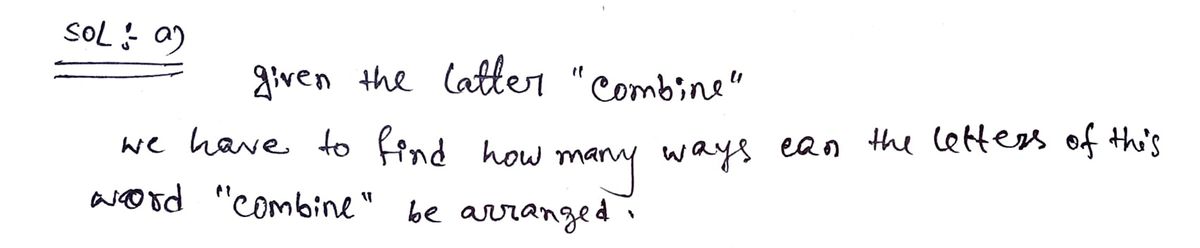 SOL :- a)
given the latter "combine"
we have to find how many ways can the letters of this
word "combine" be arranged.